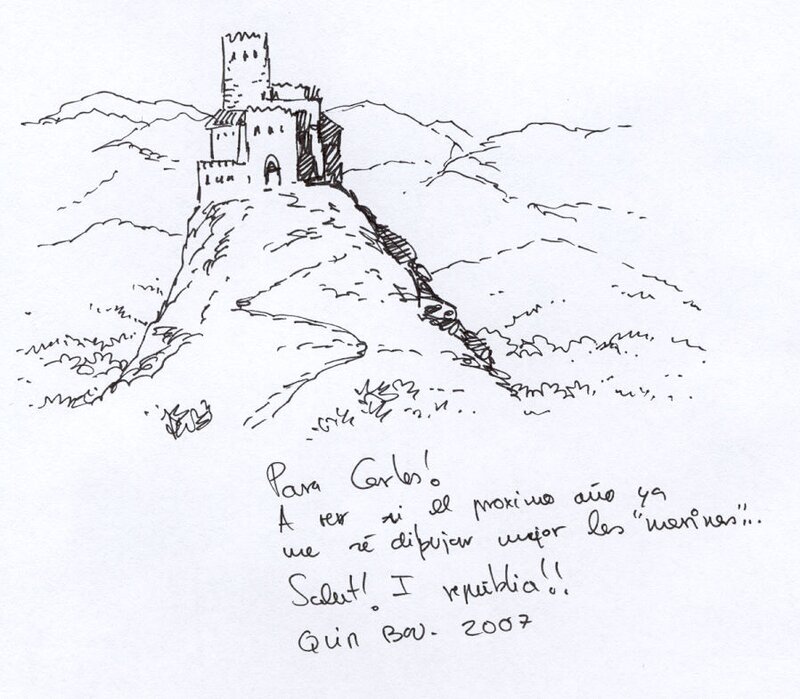 Para Carlos!
A ver si el proximo año ya
me sé dibujar mejor las "marinas"...
Salut! I república!!
Quim Bou. 2007